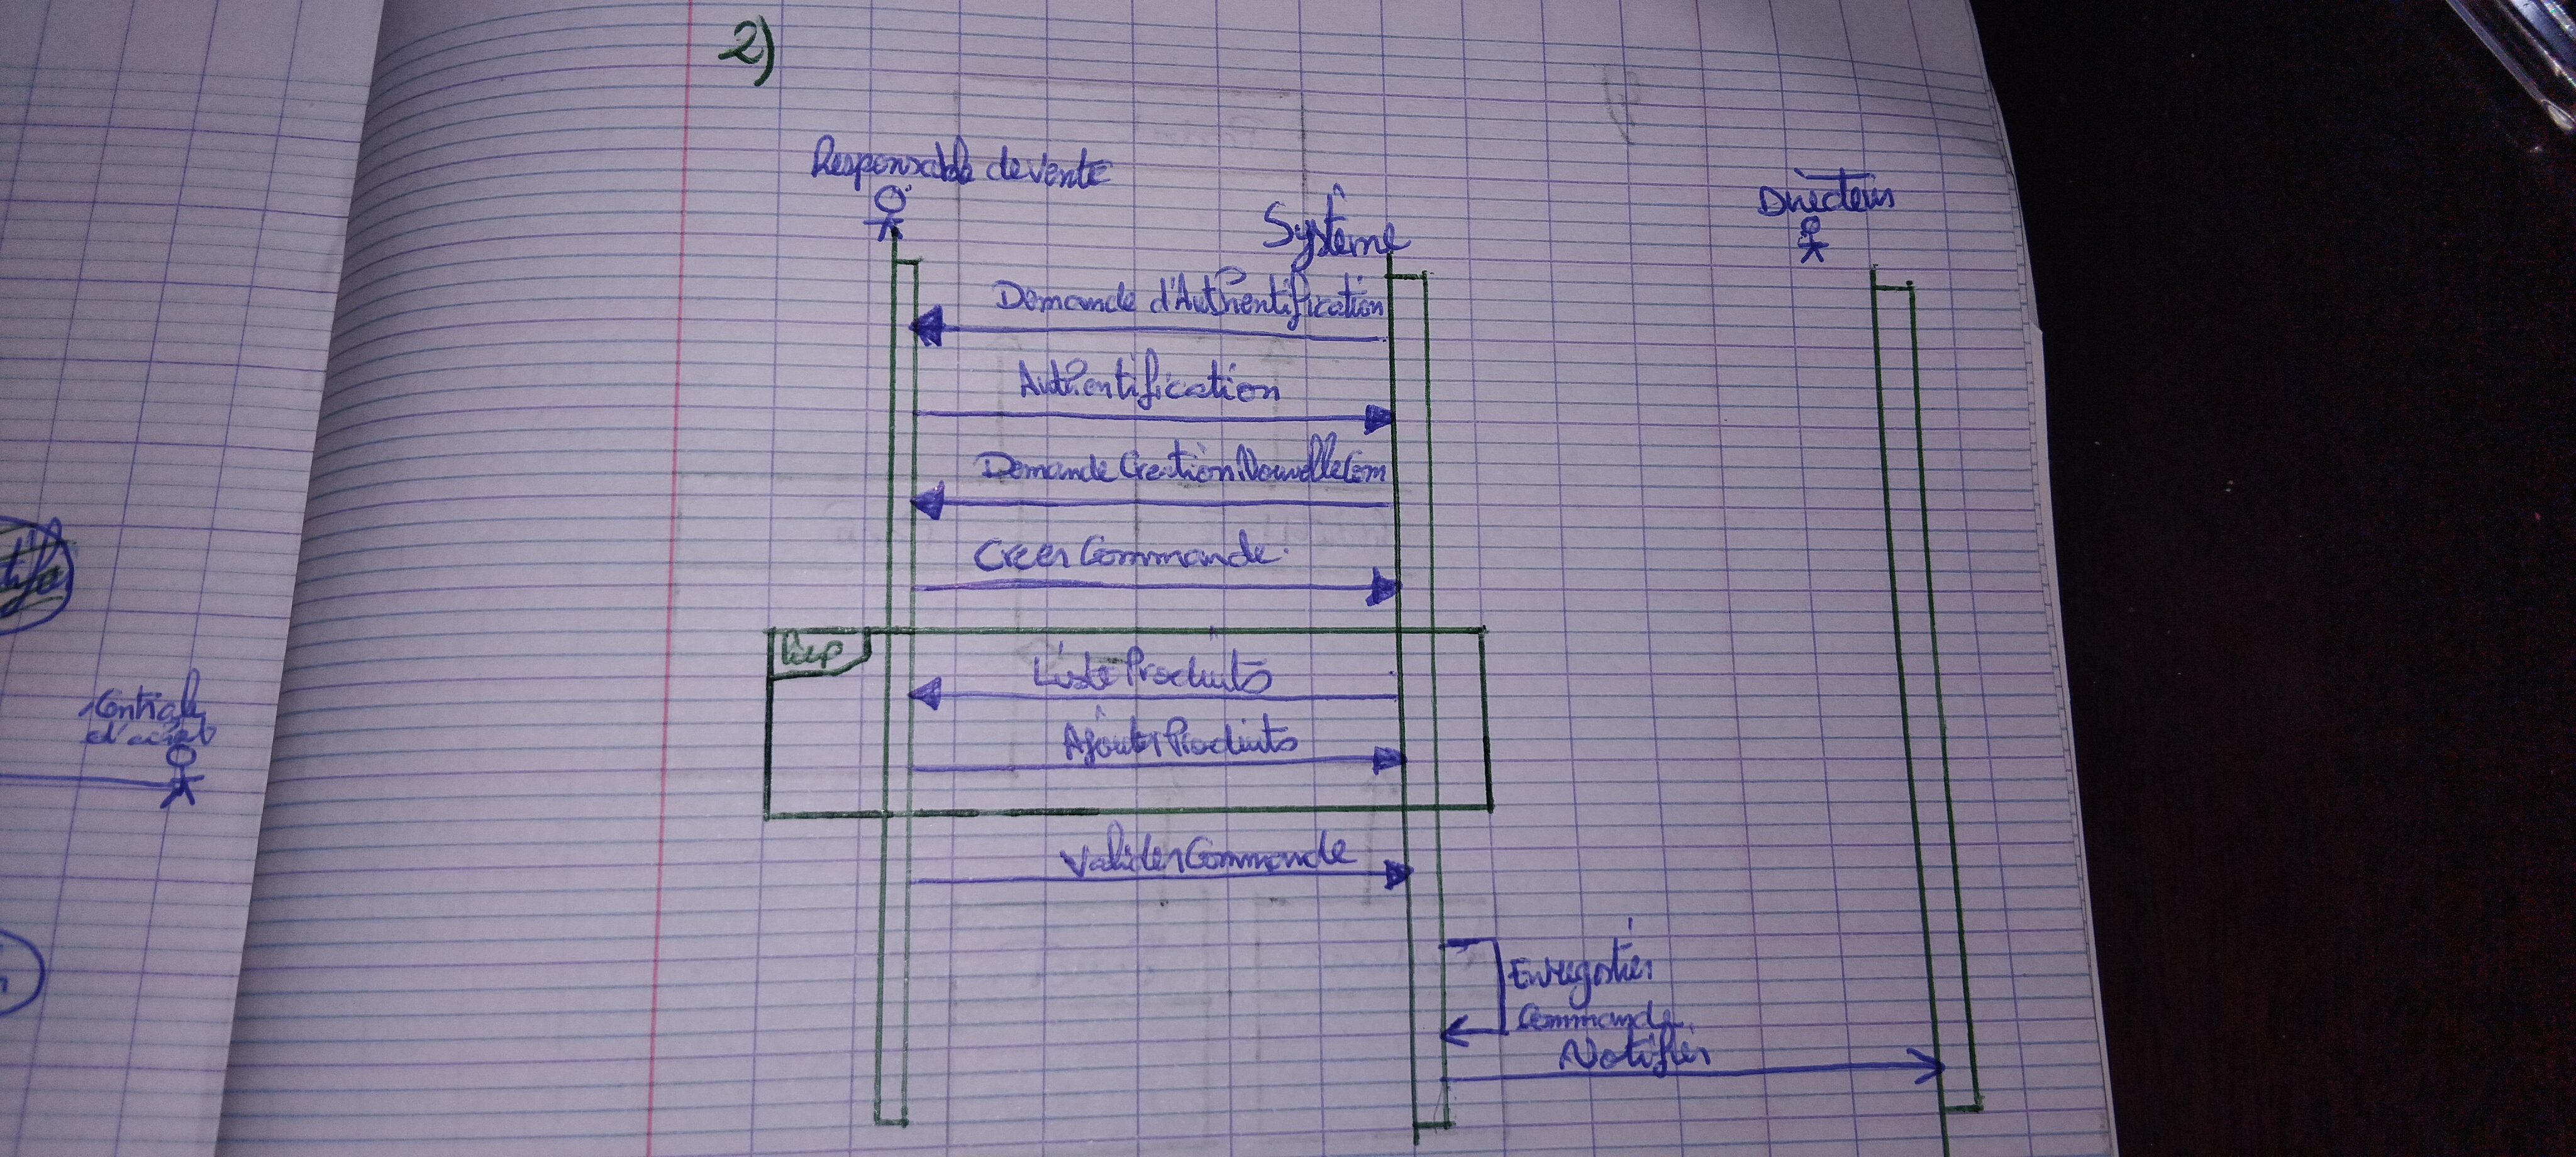 2)
Responsable de vente
Système
Directeur
Demande d'Authentification
Authentification
Demande CreationNouvelleCom
Creer Commande
Loop
Liste Produits
Ajouter Produits
Valider Commande
Enregistrer
Commande
Notifier